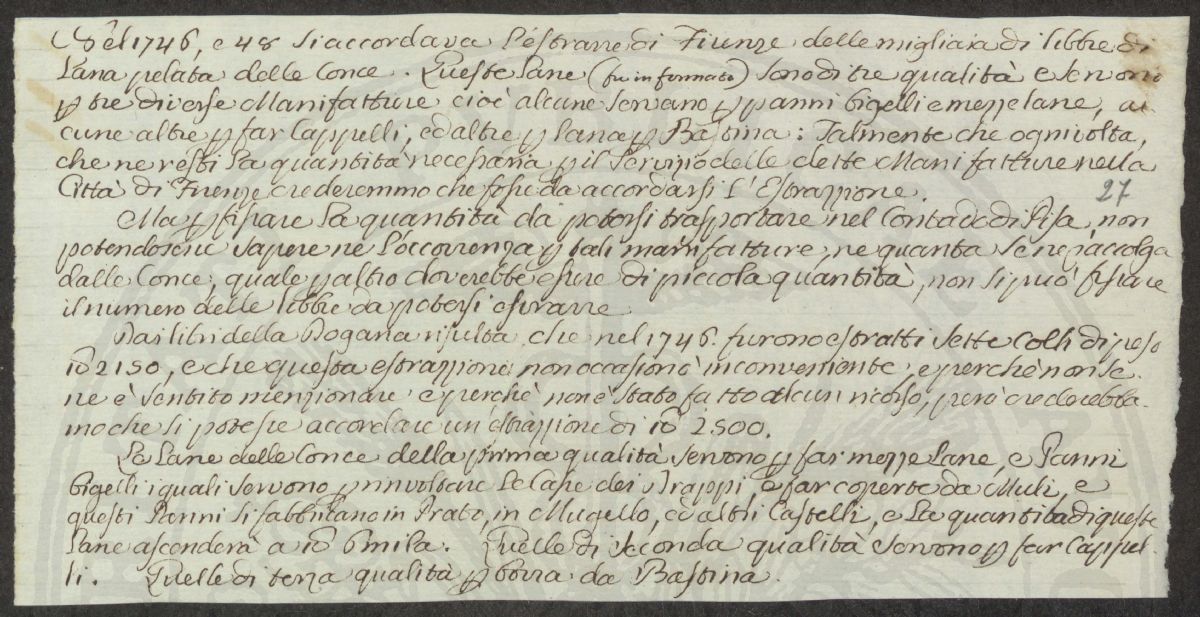 Nel 1746, e 48 si accordava l'estrarre di Firenze delle migliaia di libbre di
Lana pelata delle Conce. Queste Lane (fu informato) sono di tre qualità e servono
p tre diverse Manifatture cioè alcune servano p panni bigelli e mezze lane, al
cune altre p far Cappelli, ed altre p lana p Bastina: Talmente che ogni volta,
che ne resti la quantità necessaria p il servizio delle dette Manifatture nella
Città di Firenze crederemmo che fosse da accordarsi l'Estrazzione.
27
Ma p fissare la quantità da potersi trasportare nel Contado di Pisa, non
potendosene sapere ne l'occorrenza p tali manifatture, ne quanta se ne raccolga
dalle Conce, quale p altro doverebbe essere di piccola quantità, non si può fissare
il numero delle libbre da potersi estrarre
Dai libri della Dogana risulta, che nel 1746. furono estratti sette Colli di peso
lb 2150, e che questa estrazzione non occasionò inconveniente, e perchè non se
ne è sentito menzionare e perchè non è stato fatto alcun ricorso, però crederebba-
mo che si potesse accordare un'estrazzione di lb 2500.
Le Lane delle Conce della prima qualità servono p far mezze Lane, e Panni
bigelli i quali servono p rinvoltare le Case dei Drappi, e far coperte da Muli, e
questi Panni si fabbricano in Prato, in Mugello, ed altri Castelli, e la quantità di queste
lane ascenderà a lb 6mila. Quelle di seconda qualità servono p far Cappel-
li. Quelle di terza qualità p borra da Bastina.